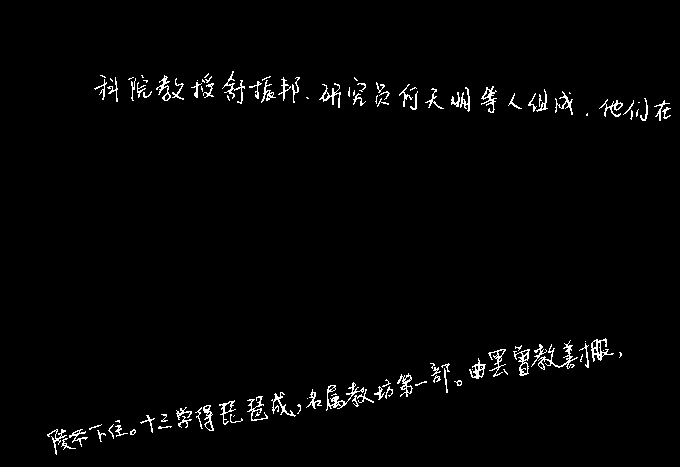 科院教授舒振邦、研究员何天明等人组成，他们在
陵下住。十三学得琵琶成，名属教坊第一部。曲罢曾教善棴，